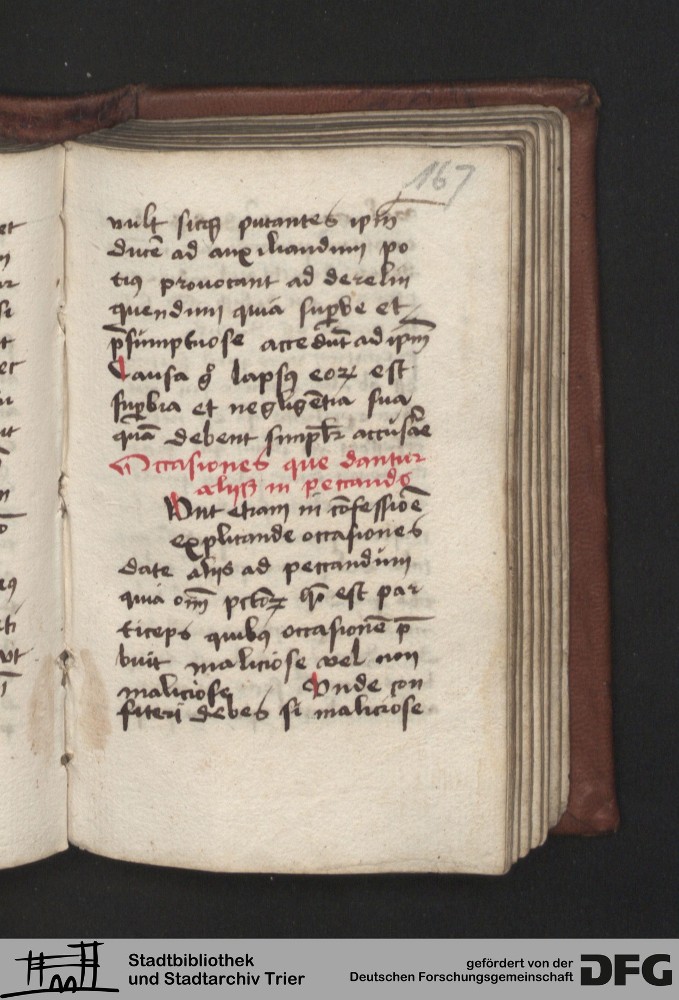 167
vult sicqꝫ putantes ip̄m
ducē ad auxiliandum po
tiꝰ provocant ad derelin
quendum quia sup̱be et
p̄sumptuose accedūt ad ip̄m
Causa gͦ lapsꝰ eoꝝ est
sup̱bia et negligētia sua
quā debent simpl̄r accusāe
Occasiones que dantur
aliis in peccando
Sunt etiam in cōfessiōe
explicande occasiones
date aliis ad peccandum
quia om̄ pctōꝝ hō est par
ticeps quibꝰ occasionē p̄
buit maliciose vel non
maliciose Unde con
fiteri debes si maliciose
et
t
ut
Stadtbibliothek
und Stadtarchiv Trier
gefördert von der
Deutschen Forschungsgemeinschaft
DFG